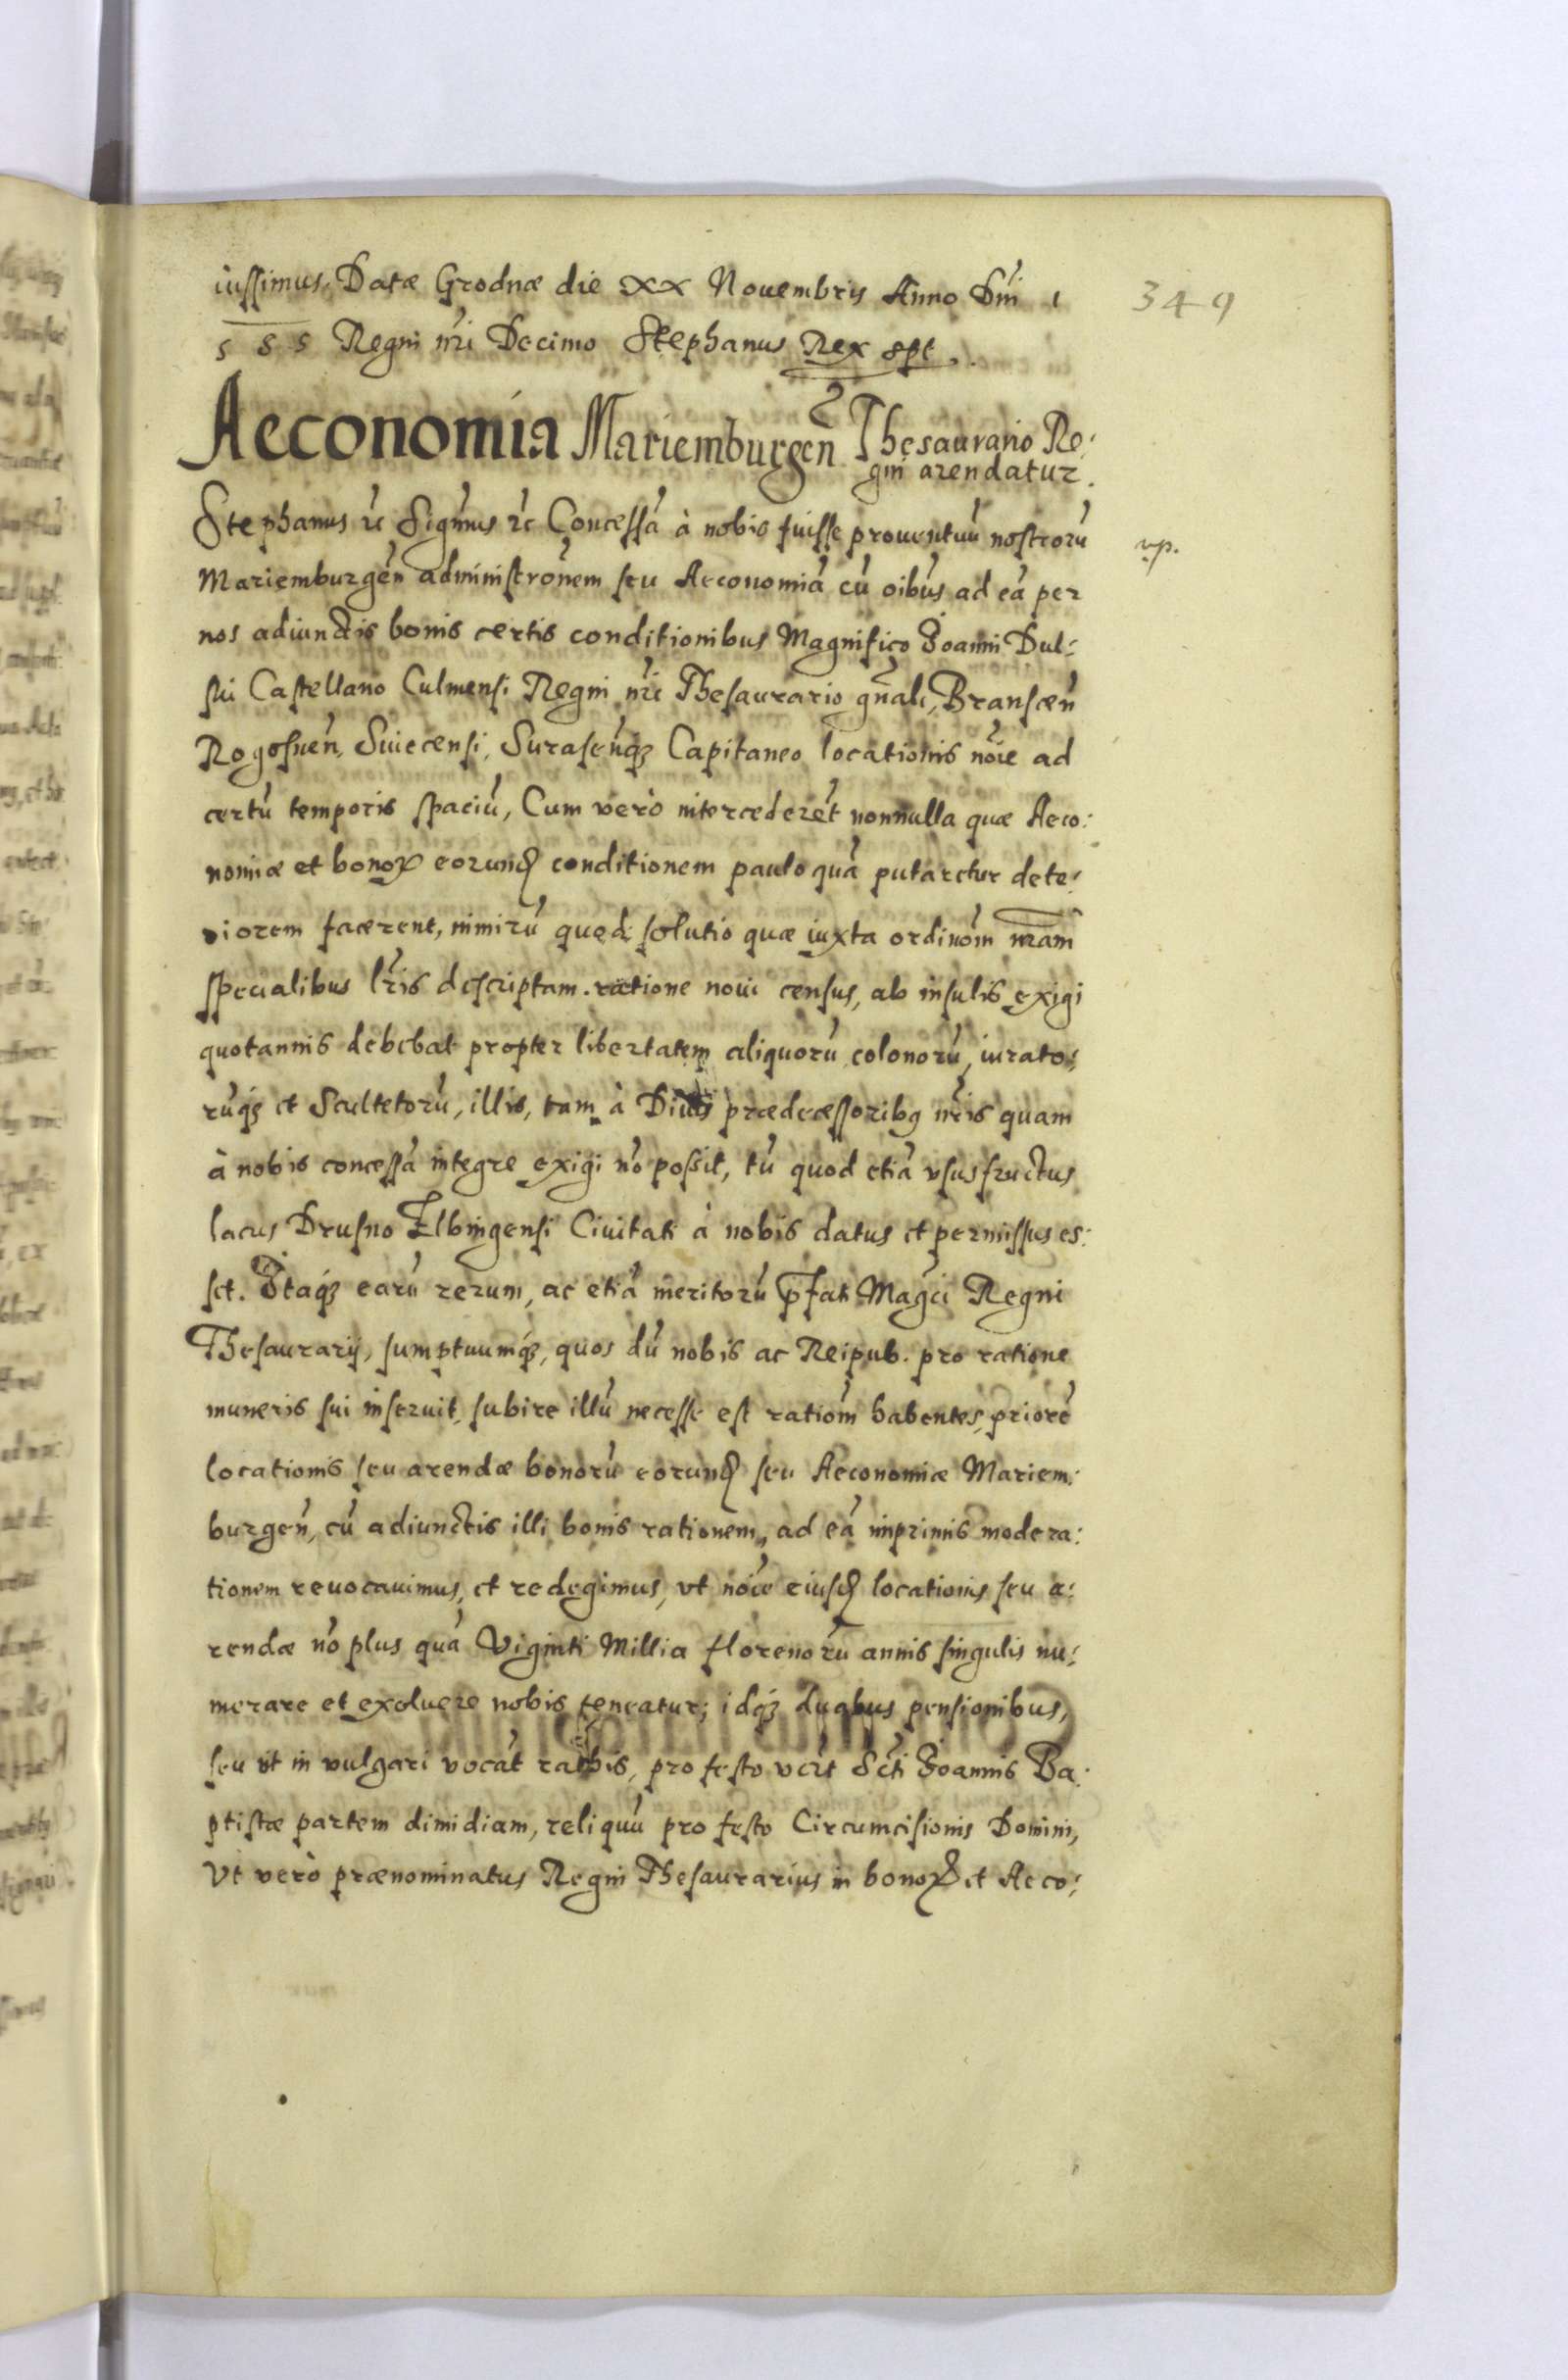 iussimus. Datæ Grodnæ die XX Nouembris Anno Dni 1
5 8 5 Regni nri Decimo Stephanus Rex sspt.
349
Aeconomia Mariemburgen̄ Thesaurario Re:
gni arendatur.
Stephanus ꝛc Signmus ꝛc Concessā à nobis fuisse prouentuū nostrorū
vp.
Mariemburgen̄ administronem seu Aeconomiā cū oibus ad eā per
nos adiunctis bonis certis conditionibus Magnifico Ioanni Dul:
ski Castellano Culmensi Regni nri Thesaurario gnali, Branscen̄
Rogosnen̄, Suiecensi, Surasenqȝ Capitaneo locationis noīe ad
certū temporis spaciū, Cum verò intercederēt nonnulla quæ Aeco:
nomiæ et bonoꝝ eorundꝫ conditionem paulo quā putaretur dete:
riorem facerent, nimirū quod solutio quæ iuxta ordinom nram
specialibus lris descriptam ratione noui census, ab insulis exigi
quotannis debebat propter libertatem aliquorū colonorū, iurato:
rūqȝ et Scultetorū, illis, tam à Diuis prædecessoribꝫ nris quam
à nobis concessā integre exigi nō possit, tū quod etiā vsusfructus
lacus Drusno Elbingensi Ciuitati à nobis datus et permissus es:
set. Itaqȝ earū rerum, ac etiā meritorū pfati Magci Regni
Thesaurarij, sumptuumqȝ, quos dū nobis ac Reipub. pro ratione
muneris sui inseruit, subire illū necesse est rationm habentes, priorē
locationis seu arendæ bonorū eorundꝫ seu Aeconomiæ Mariem:
burgen̄, cū adiunctis illi bonis rationem, ad eā inprimis modera:
tionem reuocauimus, et redegimus, vt noīe eiusdꝫ locationis seu a:
rendæ nō plus quā Viginti Millia florenorū annis singulis nu:
merare et exoluere nobis teneatur; idqȝ duabus pensionibus,
seu vt in vulgari vocāt rathis, pro festo vcrt Scti Ioannis Ba:
ptistæ partem dimidiam, reliquū pro festo Circumcisionis Domini,
Vt verò prænominatus Regni Thesaurarius in bonoꝝ et Aeco: